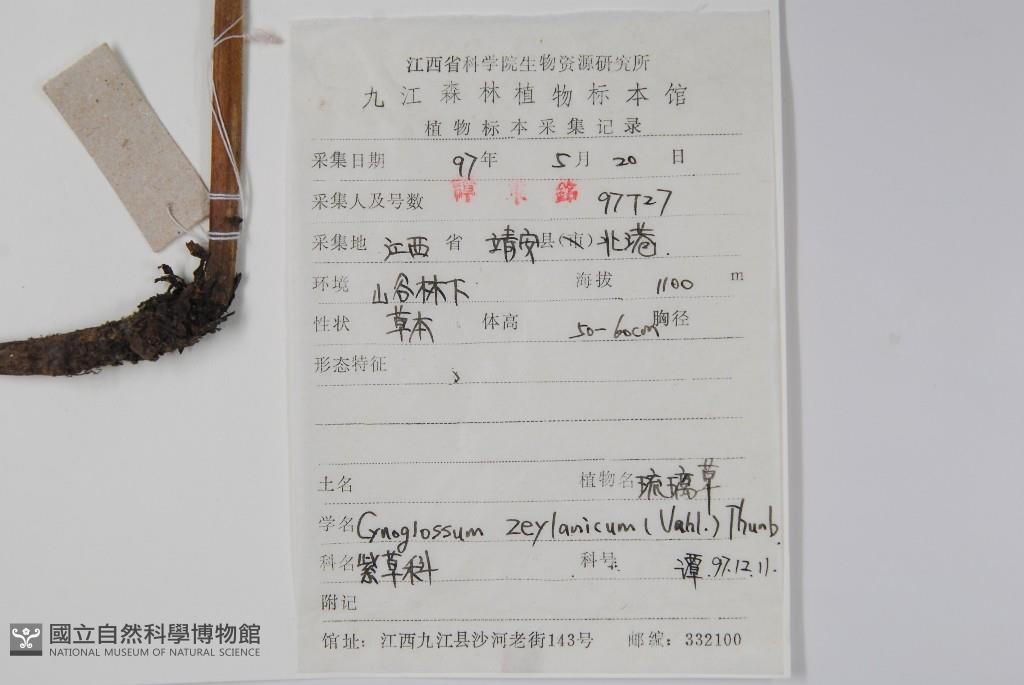 江西省科学院生物资源研究所
九江森林植物标本馆
植物标本采集记录
采集日期 97年 5月 20 日
采集人及号数 譚 策 銘 97727
采集地 江西 省 靖安 县(市) 北港
环境 山谷林下 海拔 1100 m
性状 草本 体高 50-60cm 胸径
形态特征
土名 植物名 琉璃草
学名 Cynoglossum zeylanicum (Vahl.) Thunb.
科名 紫草科 科号 谭.97.12.11.
附记
馆址: 江西九江县沙河老街143号 邮编: 332100
國立自然科學博物館
NATIONAL MUSEUM OF NATURAL SCIENCE